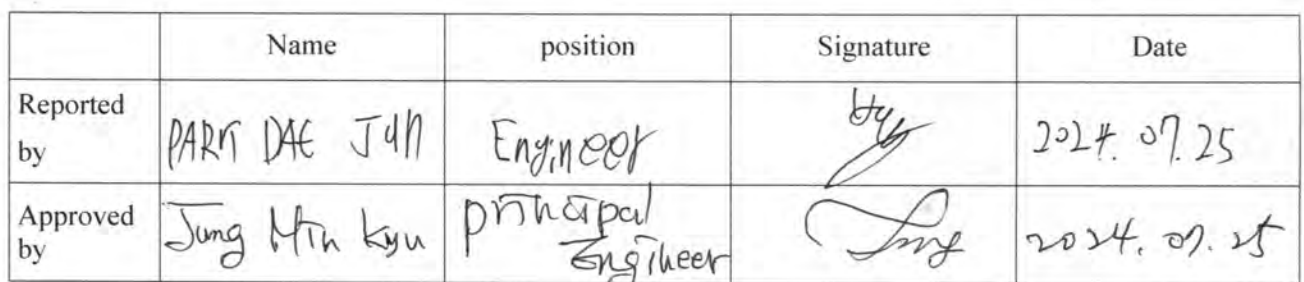 Name position Signature Date
Reported by PARK DAE JUN Engineer 2024. 07. 25
Approved by Jung Min kyu principal Engineer Jung 2024. 07. 25